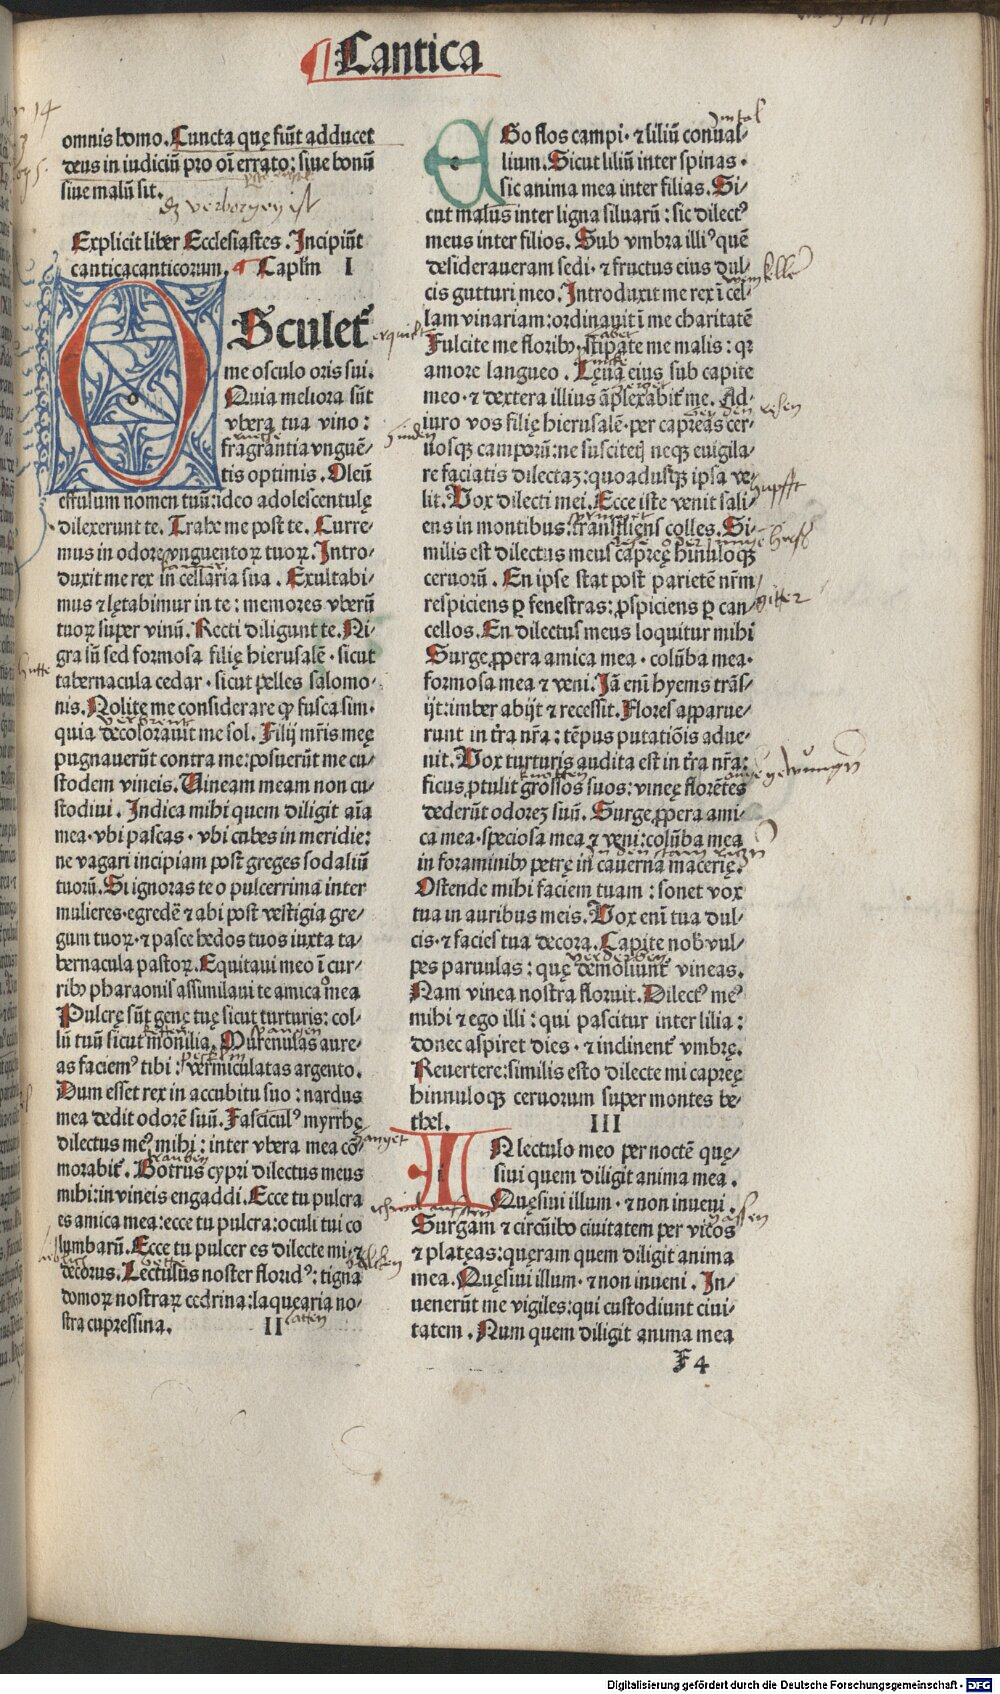 Cantica
omnis homo. Cuncta quę fiūt adducet
deus in iudiciū pro oī errato: siue bonū
siue malū sit.
dz verborgen ist
Explicit liber Ecclesiastes. Incipiūt
canticacanticorum. ¶ Caplm I
OSculet᷑
me osculo oris sui.
Quia meliora sūt
vbera tua vino:
fragrantia vnguē-
tis optimis. Oleū
effusum nomen tuū: ideo adolescentulę
dilexerunt te. Trahe me post te. Curre-
mus in odorē vnguentoꝝ tuoꝝ. Intro-
duxit me rex in cellaria sua. Exultabi-
mus ⁊ lętabimur in te: memores vberū
tuoꝝ super vinū. Recti diligunt te. Ni-
gra sū sed formosa filię hierusalē · sicut
tabernacula cedar · sicut pelles salomo-
nis. Nolite me considerare ꝙ fusca sim ·
verprent
quia decolorauit me sol. Filij mr̄is meę
pugnauerūt contra me: posuerūt me cu-
stodem vineis. Vineam meam non cu-
stodiui. Indica mihi quem diligit aīa
mea · vbi pascas · vbi cubes in meridie:
ne vagari incipiam post greges sodaliū
tuorū. Si ignoras te o pulcerrima inter
mulieres · egredē ⁊ abi post vestigia gre-
gum tuoꝝ · ⁊ pasce hedos tuos iuxta ta-
bernacula pastoꝝ. Equitaui meo ī cur-
ribꝰ pharaonis assimilaui te amica mea
Pulcrę sūt genę tuę sicut turturis: col-
lū tuū sicut monilia. Murenulas aure-
as faciemꝰ tibi: vermiculatas argento.
Dum esset rex in accubitu suo: nardus
mea dedit odorē suū. Fasciculꝰ myrrhę
dilectus meꝰ mihi: inter vbera mea cō-
morabit᷑. Botrus cypri dilectus meus
mihi: in vineis engaddi. Ecce tu pulcra
es amica mea: ecce tu pulcra: oculi tui co
lumbarū. Ecce tu pulcer es dilecte mi: ⁊
decorus. Lectulus noster floridꝰ: tigna
domoꝝ nostraꝝ cedrina: laquearia no-
stra cupressina. II
latten
EGo flos campi · ⁊ liliū conual-
lium. Sicut liliū inter spinas ·
sic anima mea inter filias. Si-
cut malus inter ligna siluarū: sic dilectꝰ
meus inter filios. Sub vmbra illiꝰ quē
desideraueram sedi · ⁊ fructus eius dul-
cis gutturi meo. Introduxit me rex ī cel-
lam vinariam: ordinauit ī me charitatē
Fulcite me floribꝰ · stipate me malis: qꝛ
amore langueo. Lęua eius sub capite
meo · ⁊ dextera illius āplexabit᷑ me. Ad-
iuro vos filię hierusalē · per capreas cer-
uosqꝫ camporū: ne suscitetꝭ neqꝫ euigila-
re faciatis dilectaꝫ: quoadusqꝫ ipsa ve-
lit. Vox dilecti mei. Ecce iste venit sali-
ens in montibus: transiliens colles. Si-
milis est dilectus meus capreę hinnuloqꝫ
ceruorū. En ipse stat post parietē nr̄m
respiciens ꝑ fenestras: ꝓspiciens ꝑ can-
gitter
cellos. En dilectus meus loquitur mihi
Surge ꝓpera amica mea · colūba mea ·
formosa mea ⁊ veni. Iā enī hyems trās-
ijt: imber abijt ⁊ recessit. Flores apparue-
runt in tr̄a nr̄a: tēpus putatiōis adue-
nit. Vox turturis audita est in tr̄a nr̄a:
knotten
ficus ꝓtulit grossos suos: vineę florētes
dederūt odoreꝫ suū. Surge ꝓpera ami-
ca mea · speciosa mea ⁊ veni: colūba mea
in foraminibꝰ petrę in cauerna macerię.
Ostende mihi faciem tuam: sonet vox
tua in auribus meis. Vox enī tua dul-
cis · ⁊ facies tua decora. Capite nob̄ vul-
verderben
pes paruulas: quę demoliunt᷑ vineas.
Nam vinea nostra floruit. Dilectꝰ meꝰ
mihi ⁊ ego illi: qui pascitur inter lilia:
donec aspiret dies · ⁊ inclinent᷑ vmbrę.
Reuertere: similis esto dilecte mi capreę
hinnuloqꝫ ceruorum super montes be-
thel. III
IN lectulo meo per noctē quę-
siui quem diligit anima mea.
Quęsiui illum · ⁊ non inueni.
gassen
Surgam ⁊ circūibo ciuitatem per vicos
⁊ plateas: quęram quem diligit anima
mea. Quęsiui illum · ⁊ non inueni. In-
uenerūt me vigiles: qui custodiunt ciui-
tatem. Num quem diligit anima mea
F 4
Digitalisierung gefördert durch die Deutsche Forschungsgemeinschaft · DFG